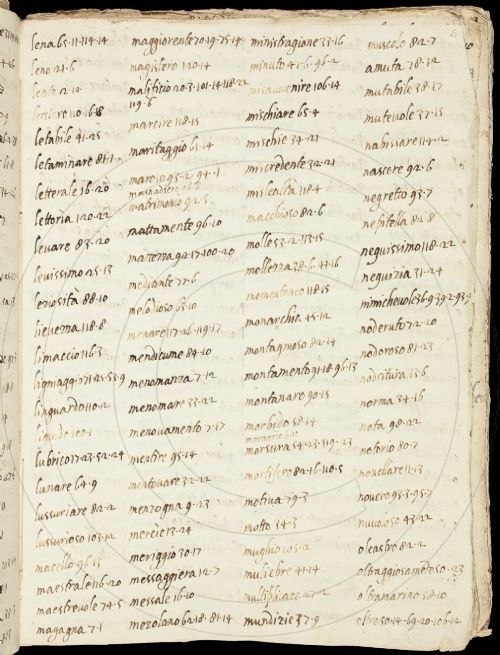 6
lena 65·11·119·14
leno 21·6
lento 2·14
letabile 41·25
letaminare 81·1
letterale 16·20
lettoria 120·22
levare 83·20
levissimo 25·13
leziosità 88·10
lievezza 118·8
limaccio 116·3
linguardo 110·2
liquido 100·1
lubrico 17·23·52·24
lunare 64·9
lussuriare 82·2
lussurioso 103·12
macello 96·15
maestrale 116·20
maestrevole 74·5
magagna 7·1
maggiorente 70·19·75·14
magistero 120·14
malificio 20·3·101·14·118·22
119·6
marcire 118·15
maritaggio 61·14
maroso 95·2·94·1
masnadiere 26·6
matrimonio 92·5
mattamente 96·10
mattezza 92·17·100·20
mediante 77·6
melodioso 63·10
menare 117·26·119·17
mendicume 84·10
menomanza 7·12
menomare 33·22
menovamento 7·17
mentre 95·14
mentovare 32·22
menzogna 9·23
mercie 13·24
meriggio 30·17
messaggiera 12·7
messale 16·10
mezolano 62·18·81·14
ministragione 33·16
minuto 47·6·96·2
misavvenire 106·14
mischiare 65·4
mischie 34·21
miscredente 32·21
mislealta 118·4
macchioso 82·6
molle 53·2·113·15
mollezza 38·6·44·16
momentaneo 118·15
monarchia 45·12
montagnoso 82·14
montamento 91·18·96·13
montanaro 90·15
morbido 58·14
mormorio 6·10
morsura 54·23·119·23
mortifero 82·16·110·5
motiva 79·3
motto 34·3
mugliio 105·2
muliebre 41·14
multipliare 47·2
mundizie 37·9
muscolo 82·7
amuta 78·12
mutabile 38·17
mutevole 37·15
nabissare 114·2
nascere 92·6
negretto 93·7
nepitella 82·8
nequissimo 118·22
nequizia 31·24
nimichevole 36·9·39·2·93·9
noderuto 72·20
nodoroso 81·23
nodritura 33·6
norma 34·16
nota 98·22
notorio 80·7
novellare 11·13
novero 95·3·95·7
nuvoloso 43·22
oleastro 82·2
oltramarino 58·10
oltre 50·14·69·20·106·12